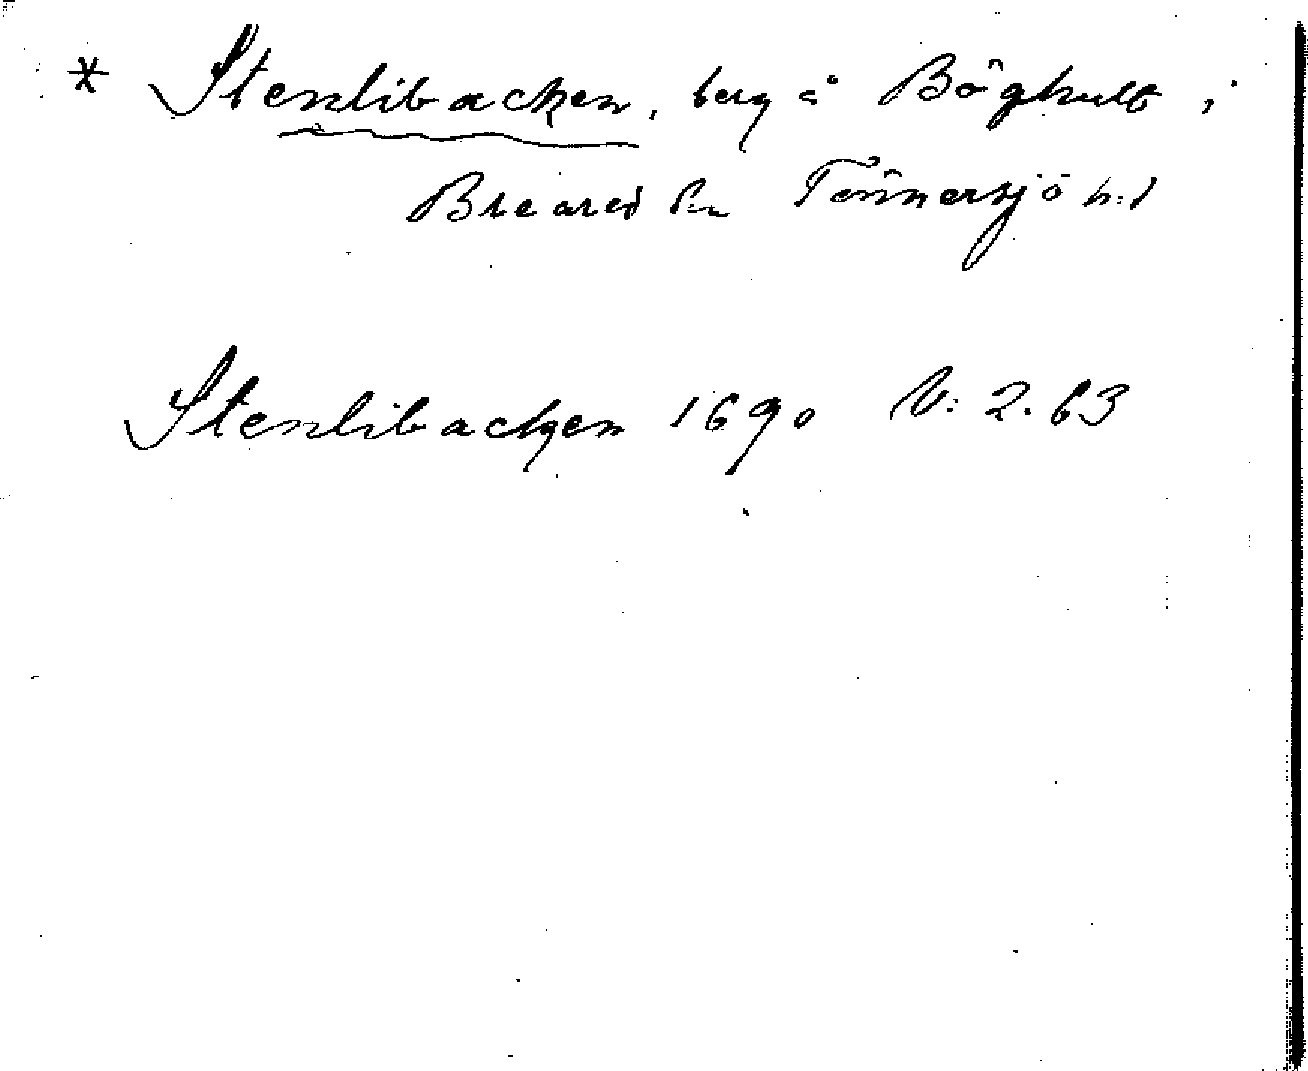 * Stenlibacken, berg å Böghult i
Breared sn Tönnersjö h:d
Stenlibacken 1690 V: 2. 63